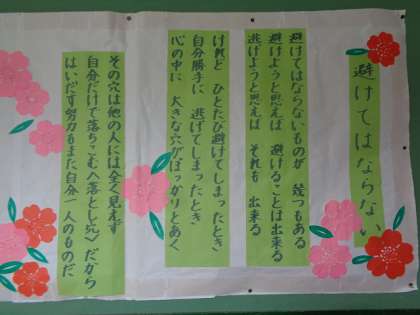 避けてはならない
避けてはならないものが　幾つもある
避けようと思えば　避けることは出来る
逃げようと思えば　それも　出来る
けれど　ひとたび避けてしまったとき
自分勝手に　逃げてしまったとき
心の中に　大きな穴がぽっかりとあく
その穴は他の人には全く見えず
自分だけで落ちこむ〈落とし穴〉だから
はいだす努力もまた自分一人のものだ